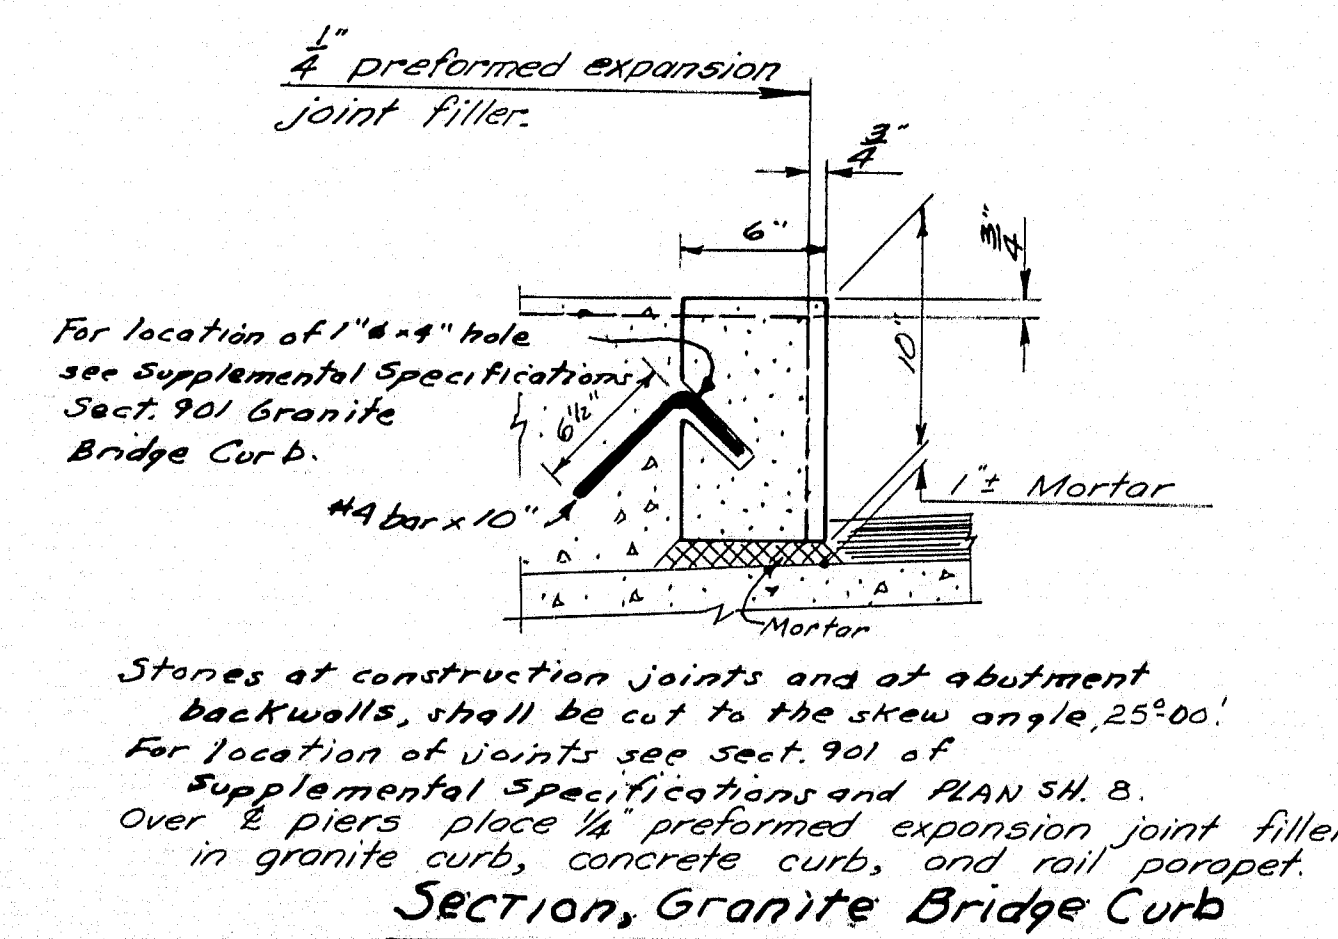 1/4" preformed expansion
joint filler.
3/4"
6"
3/4"
10"
For location of 1"ø×4" hole
see Supplemental Specifications
Sect. 901 Granite
Bridge Curb.
6 1/2"
#4 bar x 10"
1"± Mortar
Mortar
Stones at construction joints and at abutment
backwalls, shall be cut to the skew angle, 25°-00'.
For location of joints see sect. 901 of
Supplemental Specifications and PLAN SH. 8.
Over ℄ piers place 1/4" preformed expansion joint filler
in granite curb, concrete curb, and rail parapet.
Section, Granite Bridge Curb